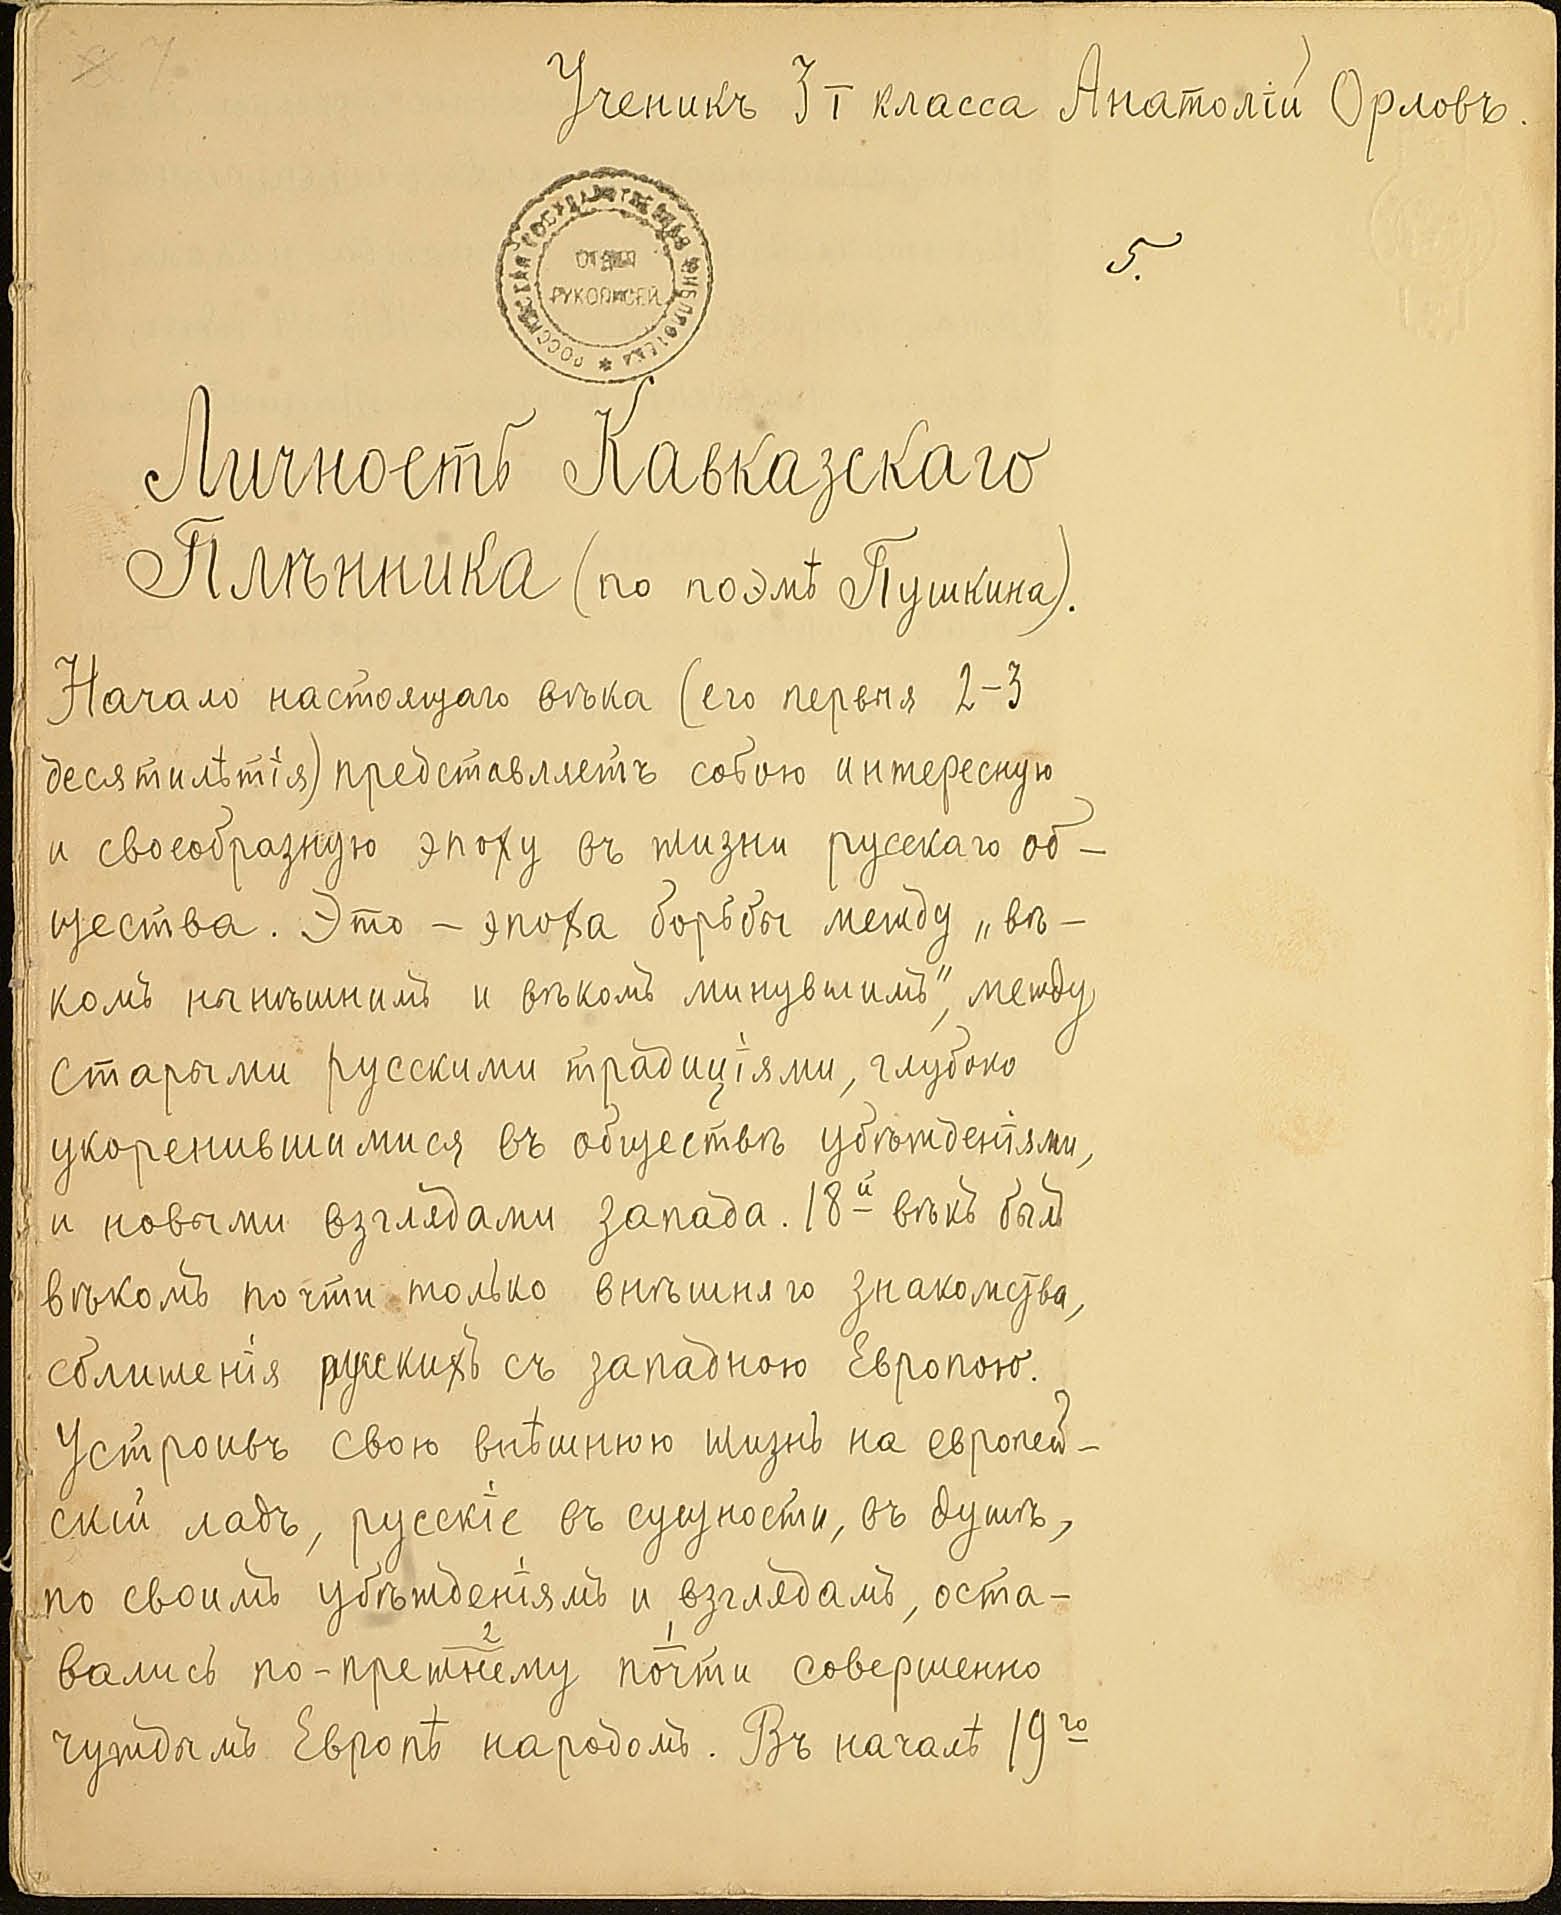 Ученикъ 3 I класса Анатолій Орловъ.
РОССИЙСКАЯ ГОСУДАРСТВЕННАЯ БИБЛИОТЕКА *
ОТДЕЛ
РУКОПИСЕЙ
5.
Личность Кавказскаго
Плѣнника (по поэмѣ Пушкина).
Начало настоящаго вѣка (его первыя 2–3
десятилѣтія) представляетъ собою интересную
и своеобразную эпоху въ жизни русскаго об–
щества. Это – эпоха борьбы между „вѣ–
комъ нынѣшнимъ и вѣкомъ минувшимъ“, между
старыми русскими традиціями, глубоко
укоренившимися въ обществѣ убѣжденіями,
и новыми взглядами запада. 18й вѣкъ былъ
вѣкомъ почти только внѣшняго знакомства,
сближенія русскихъ съ западною Европою.
Устроивъ свою внѣшнюю жизнь на европей–
скій ладъ, русскіе въ сущности, въ душѣ,
по своимъ убѣжденіямъ и взглядамъ, оста–
2 1
вались по-прежнему почти совершенно
чуждымъ Европѣ народомъ. Въ началѣ 19го